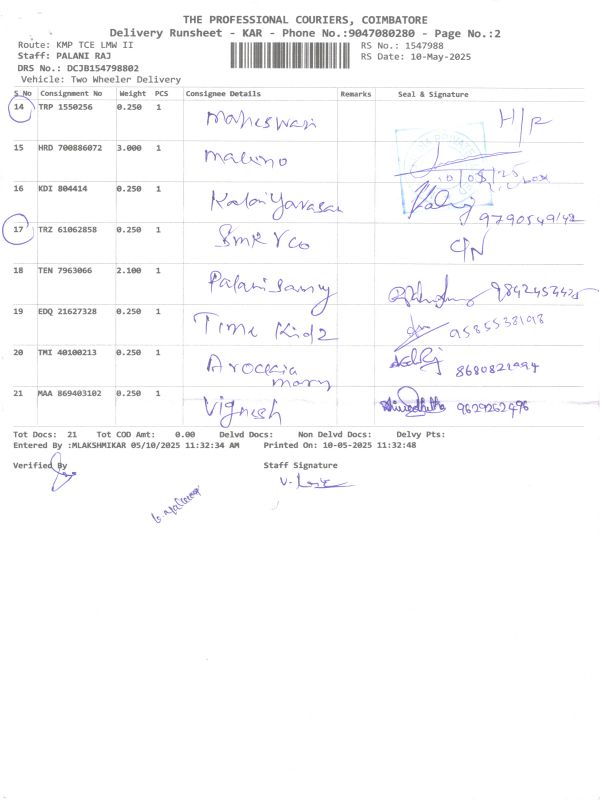 THE PROFESSIONAL COURIERS, COIMBATORE
Delivery Runsheet - KAR - Phone No.:9047080280 - Page No.:2
Route: KMP TCE LMW II RS No.: 1547988
Staff: PALANI RAJ RS Date: 10-May-2025
DRS No.: DCJB154798802
Vehicle: Two Wheeler Delivery
S No Consignment No Weight PCS Consignee Details Remarks Seal & Signature
14 TRP 1550256 0.250 1 Maheswari H/R
15 HRD 700886072 3.000 1
10/05/25
16 KDI 804414 0.250 1 KalaiYarasan
9790549142
17 TRZ 61062858 0.250 1
18 TEN 7963066 2.100 1 Palanisamy
19 EDQ 21627328 0.250 1 Time Kidz 9585538198
20 TMI 40100213 0.250 1 Arockia
mary
21 MAA 869403102 0.250 1 Vignesh 9629262496
Tot Docs: 21 Tot COD Amt: 0.00 Delvd Docs: Non Delvd Docs: Delvy Pts:
Entered By :MLAKSHMIKAR 05/10/2025 11:32:34 AM Printed On: 10-05-2025 11:32:48
Verified By Staff Signature